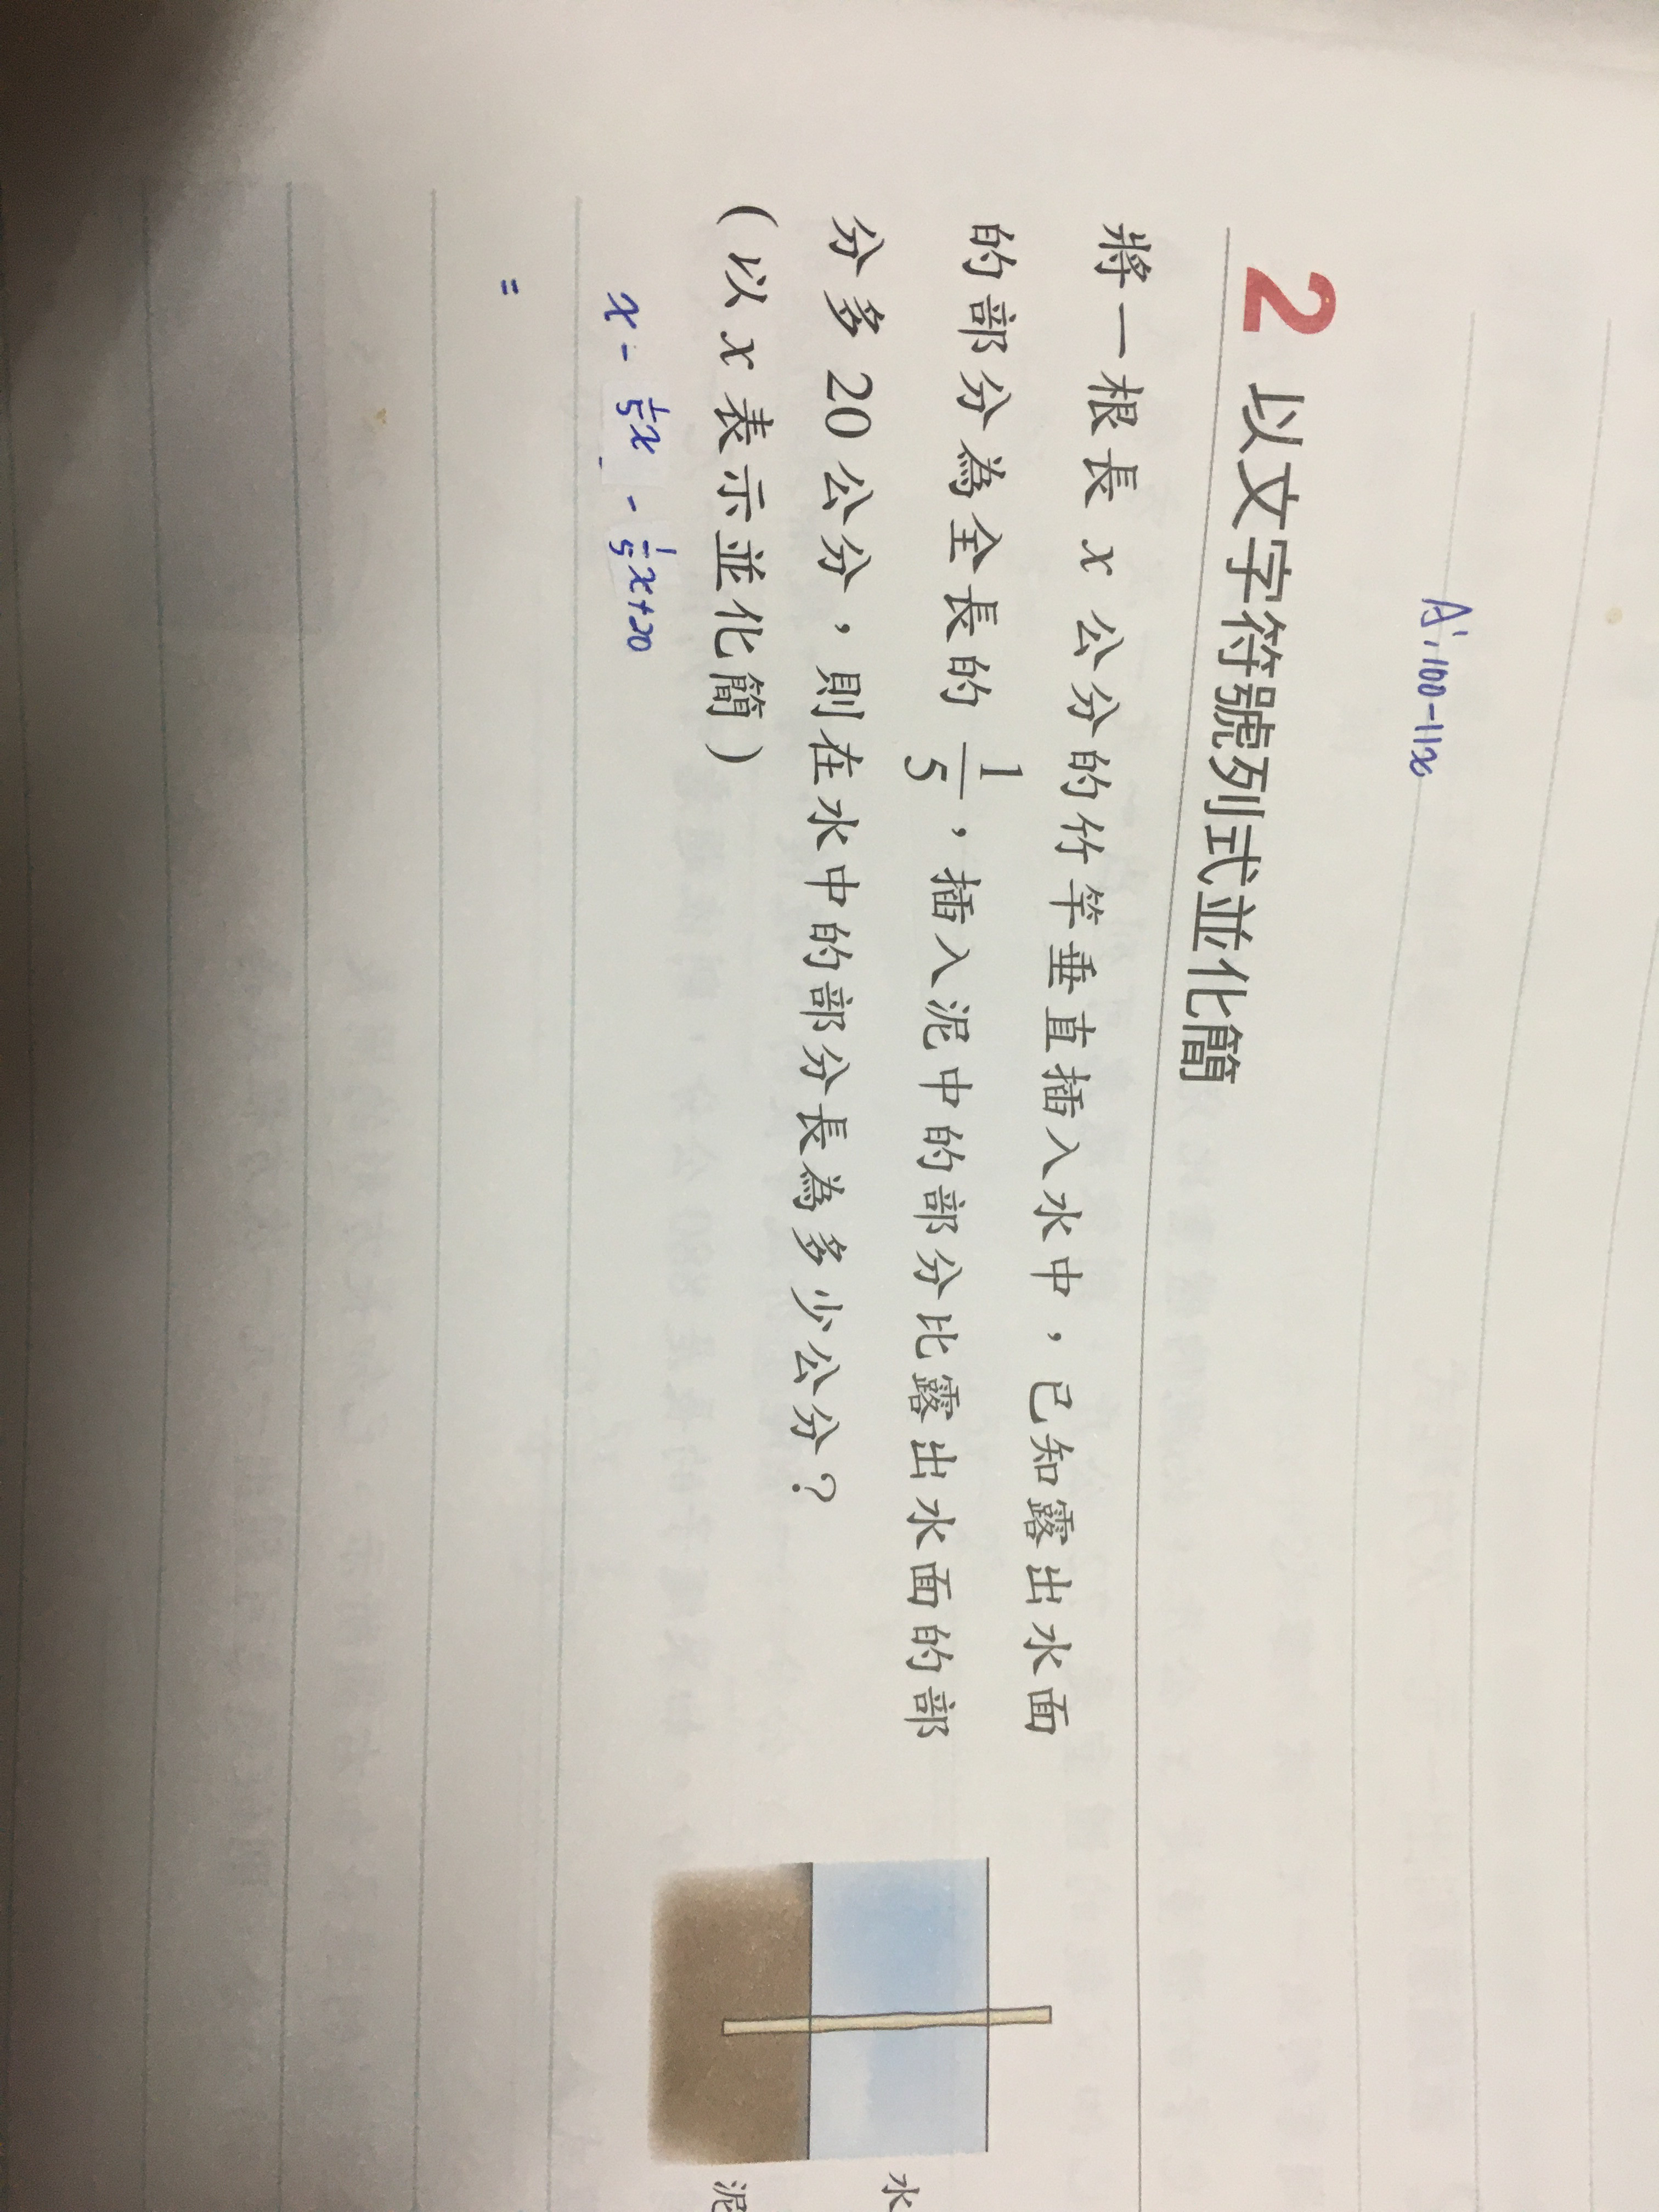 A: 100-11x
2 以文字符號列式並化簡
將一根長 x 公分的竹竿垂直插入水中，已知露出水面
的部分為全長的 1/5，插入泥中的部分比露出水面的部
分多 20 公分，則在水中的部分長為多少公分？
（以 x 表示並化簡）
x - 1/5x - 1/5x+20
=
水
泥